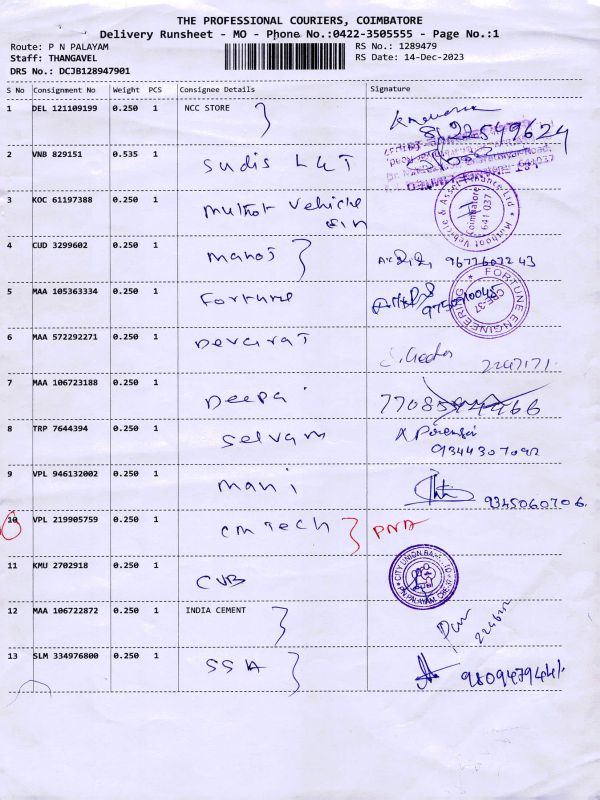 THE PROFESSIONAL COURIERS, COIMBATORE
Delivery Runsheet - MO - Phone No.:0422-3505555 - Page No.:1
Route: P N PALAYAM RS No.: 1289479
Staff: THANGAVEL RS Date: 14-Dec-2023
DRS No.: DCJB128947901
S No Consignment No Weight PCS Consignee Details Signature
1 DEL 121109199 0.250 1 NCC STORE
8122549624
2 VNB 829151 0.535 1 Sudis L&T
3 KOC 61197388 1 Muthot Vehicle
Muthoot Vehicle & Asset Finance Ltd
Coimbatore
641 037
4 CUD 3299602 0.250 1 Manoj 9677607243
5 MAA 105363334 0.250 1 Fortune
FORTUNE ENGINEERING
CBE-37
6 MAA 572292271 0.250 1 Devarat
2247171
7 MAA 106723188 0.250 1 Deepa
8 TRP 7644394 0.250 1 Selvam
9344307092
9 VPL 946132002 0.250 1 Mani 9345060706
10 VPL 219905759 0.250 1 CM Tech
11 KMU 2702918 0.250 1 CUB
CITY UNION BANK LTD
P.N.PALAYAM, CBE-37
12 MAA 106722872 0.250 1 INDIA CEMENT
13 SLM 334976800 0.250 1 SSA 9809479441